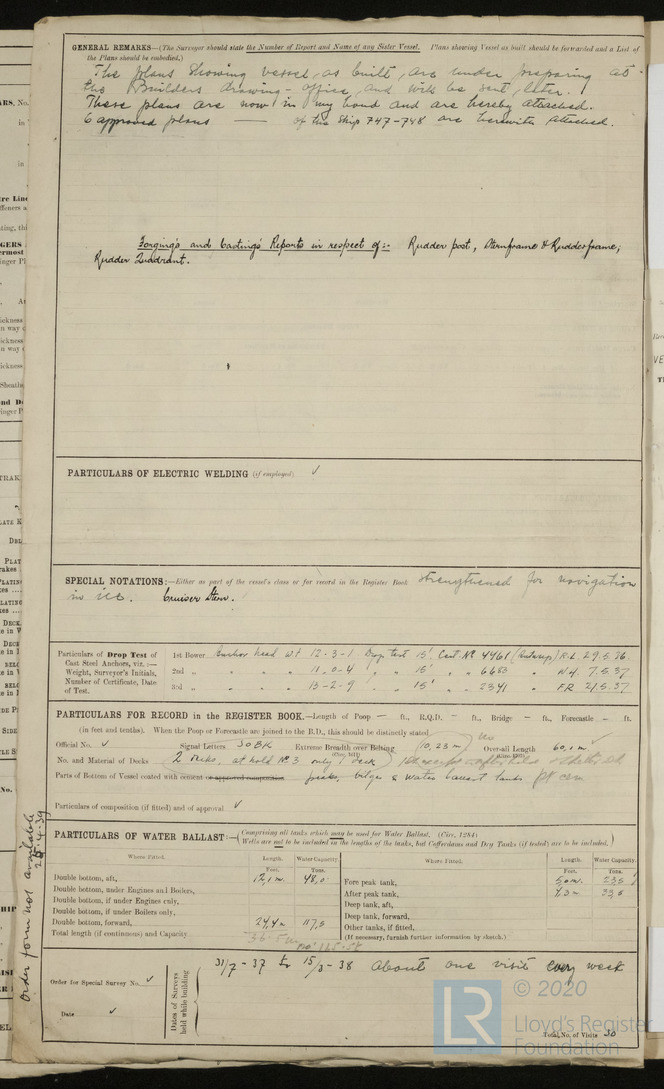 GENERAL REMARKS—(The Surveyor should state the Number of Report and Name of any Sister Vessel. Plans showing Vessel as built should be forwarded and a List of
the Plans should be embodied.)
The plans showing vessel, as built, are under preparing at
the Builders drawing-office, and will be sent, later.
These plans are now in my hand and are hereby attached.
6 approved plans — of the ship 747-748 are herewith attached.
Forging's and Casting's Reports in respect of:- Rudder post, Sternframe & Rudderframe,
Rudder Quadrant.
PARTICULARS OF ELECTRIC WELDING (if employed) ✓
SPECIAL NOTATIONS:—Either as part of the vessel's class or for record in the Register Book strengthened for navigation
in ice. Cruiser Stern.
Particulars of Drop Test of
Cast Steel Anchors, viz.:—
Weight, Surveyor's Initials,
Number of Certificate, Date
of Test.
1st Bower Anchor head wt 12-3-1 Drop test 15' Cert. No 4461 R.L. 29.5.36.
2nd " " " 11-0-4 " " 15' " 6683 " 7.5.37
3rd " " " 13-2-9 " " 15' " 2341 " FR 21.5.37
PARTICULARS FOR RECORD in the REGISTER BOOK.—Length of Poop — ft., R.Q.D. — ft., Bridge — ft., Forecastle — ft.
(in feet and tenths). When the Poop or Forecastle are joined to the B.D., this should be distinctly stated
Official No. ✓ Signal Letters Extreme Breadth over Belting 10,23m no Over-all Length 60,1m ✓
No. and Material of Decks 2 decks, at hold No 3 only 1 deck
Parts of Bottom of Vessel coated with cement or approved composition peaks, bilges & water ballast tanks
Particulars of composition (if fitted) and of approval ✓
PARTICULARS OF WATER BALLAST:—(Comprising all tanks which may to used for Water Ballast, (Circ. 1284)
(Wells are not to be included in the lengths of the tanks, but Cofferdams and Dry Tanks (if tested) are to be included.)
Where Fitted. Length. Water Capacity. Where Fitted. Length. Water Capacity.
Feet. Tons. Feet. Tons.
Double bottom, aft, 12,1m. 48,0 Fore peak tank,
Double bottom, under Engines and Boilers, After peak tank,
Double bottom, if under Engines only, Deep tank, aft,
Double bottom, if under Boilers only, Deep tank, forward,
Double bottom, forward, 24,4m 117,5 Other tanks, if fitted,
Total length (if continuous) and Capacity 36.5m (If necessary, furnish further information by sketch.)
Order for Special Survey No. ✓
Date ✓
Dates of Surveys
held while building
31/7-37 to 15/3-38 About one visit every week
Total No. of Visits 30
Order form not available
© 2020
Lloyd's Register
Foundation
LR